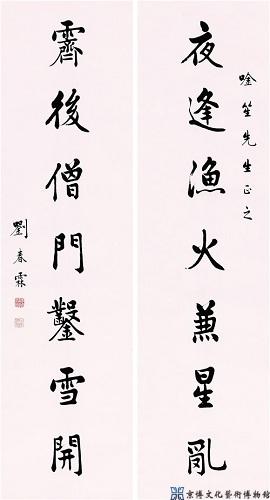 唫笙先生正之
夜逢漁火兼星亂
霽後僧門鑿雪開
劉春霖
京博文化藝術博物館